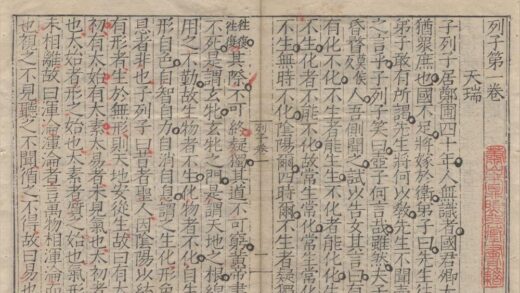 列子第一卷
天瑞
子列子居鄭圃四十年人無識者國君卿大
猶衆庶也國不足將嫁於衛弟子曰先生往
弟子敢有所謁先生將何以教先生不聞
之言乎子列子笑曰壺子何言哉雖然夫
昏瞀莫侯人吾側聞之試以告女其言曰有
有化不化不生者能生生不化者能化化
不生化者不能不化故常生常化常生常化
不生無時不化陰陽爾四時爾不生者疑獨
列子卷一
往復往復其際不可終疑獨其道不可窮黃帝書
不死是謂玄牝玄牝之門是謂天地之根綿
用之不勤故生物者不生化物者不化自生
形自色自智自力自消自息謂之生化形色
息者非也子列子曰昔者聖人因陰陽以統
有形者生於無形則天地安從生故曰有太
初有太始有太素太易者未見氣也太初者
也太始者形之始也太素者質之始也氣形
未相離故曰渾淪渾淪者言萬物相渾淪
也視之不見聽之不聞循之不得故曰易也